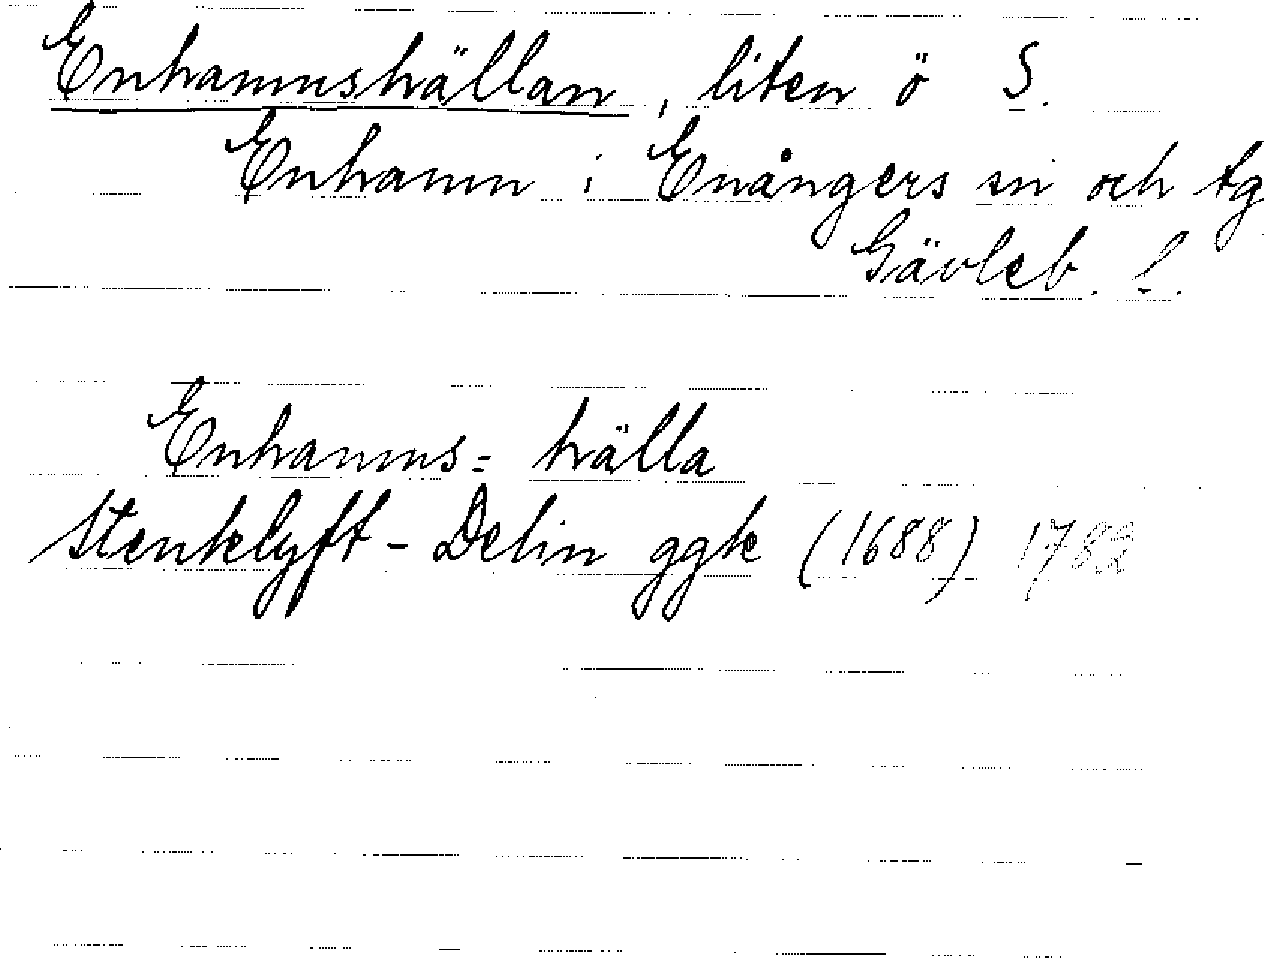 Enhamnshällan, liten ö S.
Enhamn i Enångers sn och tg
Gävleb. l.
Enhamns= hälla
Stenklyft - Delin ggk (1688) 1782